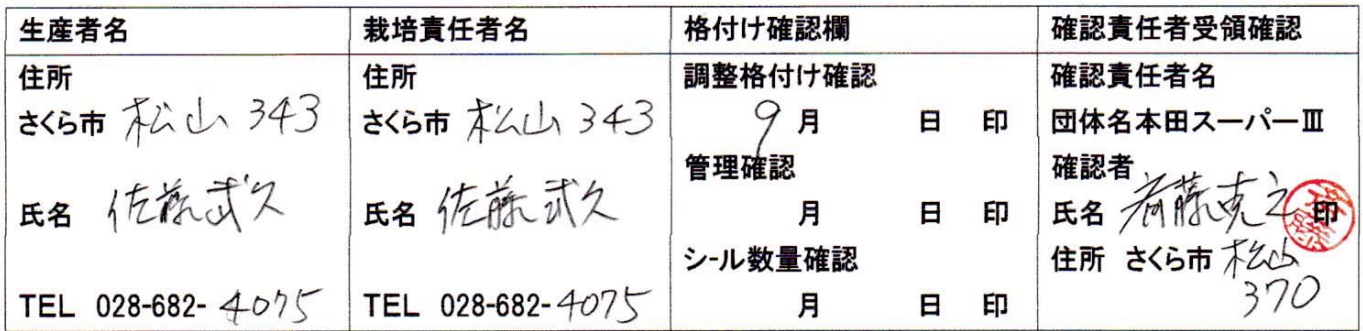 生産者名
栽培責任者名
格付け確認欄
確認責任者受領確認
住所
さくら市 松山 343
氏名 佐藤武久
TEL 028-682- 4075
住所
さくら市 松山 343
氏名 佐藤武久
TEL 028-682- 4075
調整格付け確認
9月 日 印
管理確認
月 日 印
シール数量確認
月 日 印
確認責任者名
団体名本田スーパーⅢ
確認者
氏名 斉藤克之 印
住所 さくら市 松山
370